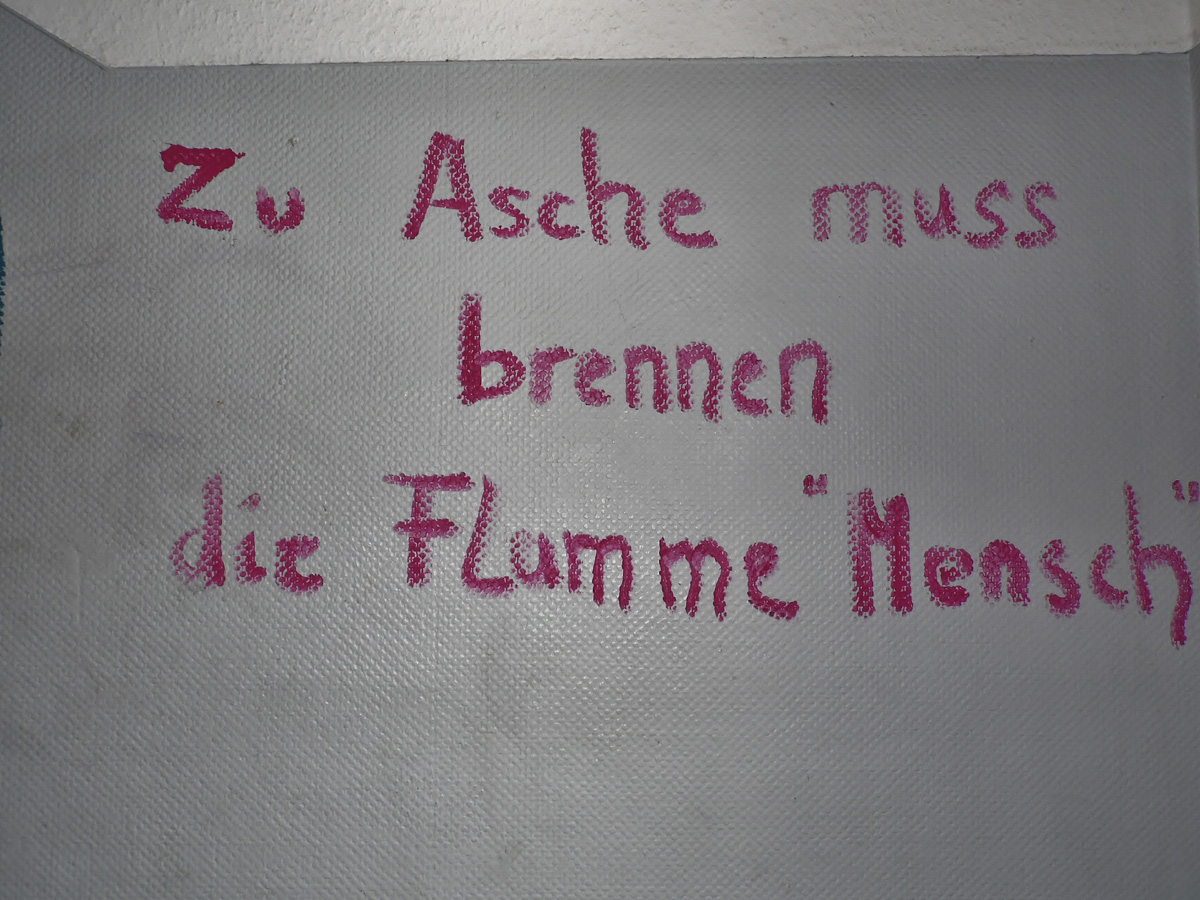 Zu Asche muss
brennen
die Flamme "Mensch"